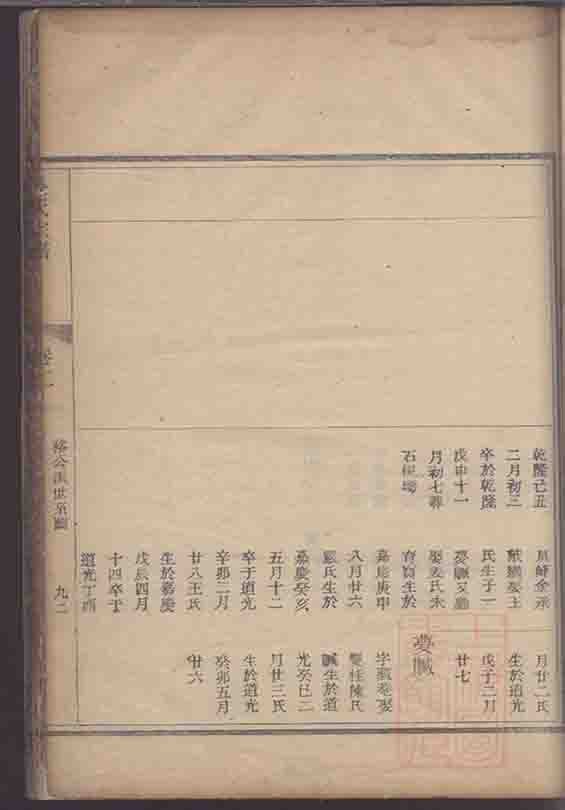 乾隆己丑
二月初三
卒於乾隆
戊申十一
月初七葬
石梘塆
氏生于一
娶姜氏夫
育寶生於
嘉慶庚申
八月廿六
嚴氏生於
嘉慶癸亥
五月十二
卒于道光
辛卯二月
廿八王氏
生於嘉慶
戊辰四月
十四卒于
道光丁酉
月廿二氏
生於道光
戊子二月
廿七
夢賦
雙桂陳氏
賦生於道
光癸巳二
月廿三氏
生於道光
癸卯五月
廿六
氏宗譜
卷二
公派世系圖
九二